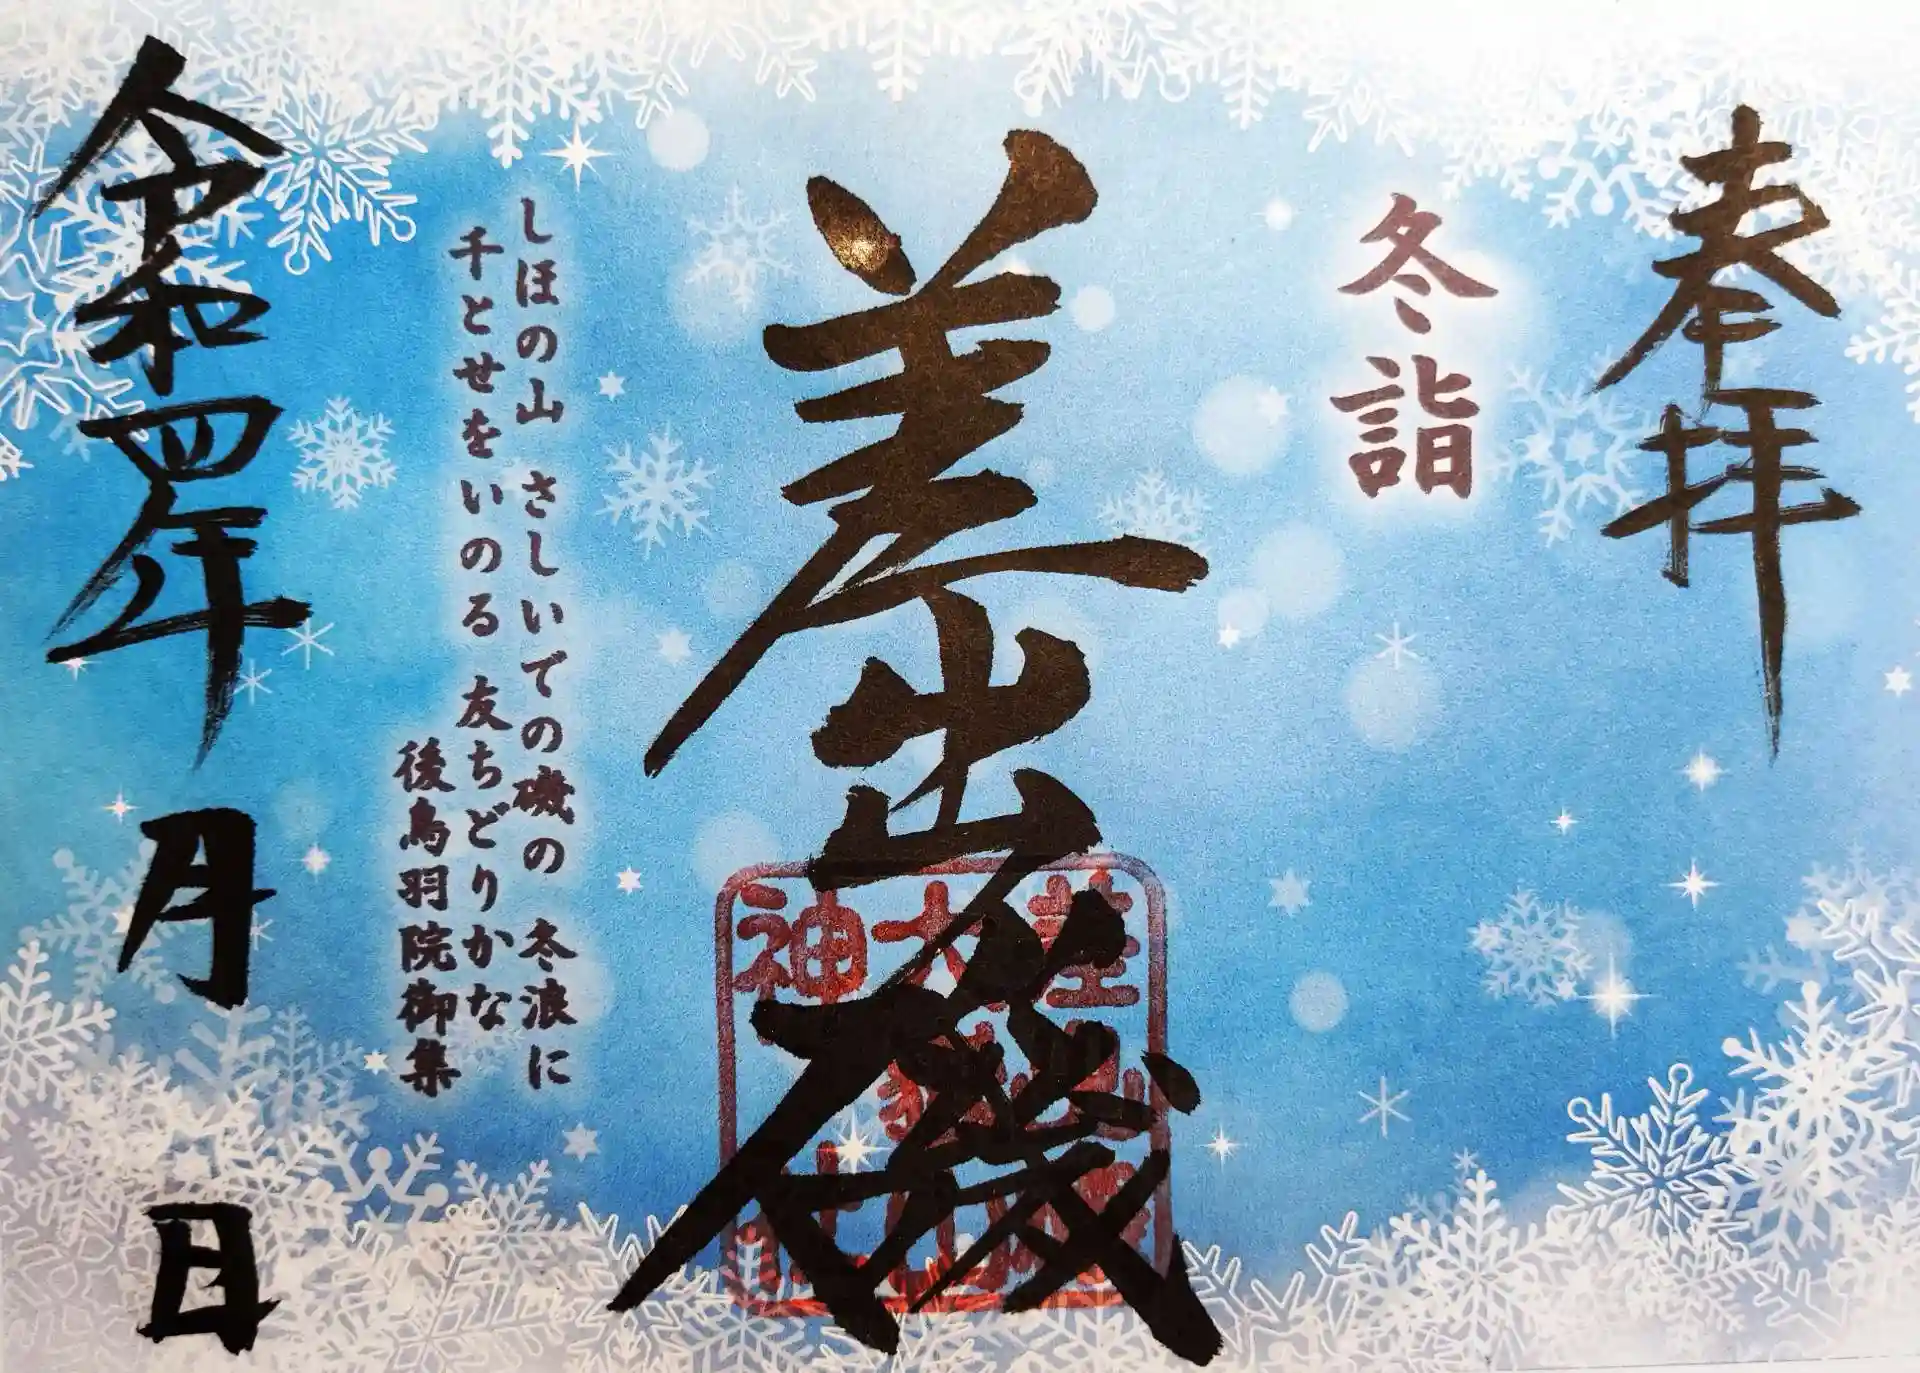 奉拝
冬詣
差出磯
しほの山 さしいでの磯の 冬浪に
千とせをいのる 友ちどりかな
後鳥羽院御集
令和四年 月 日